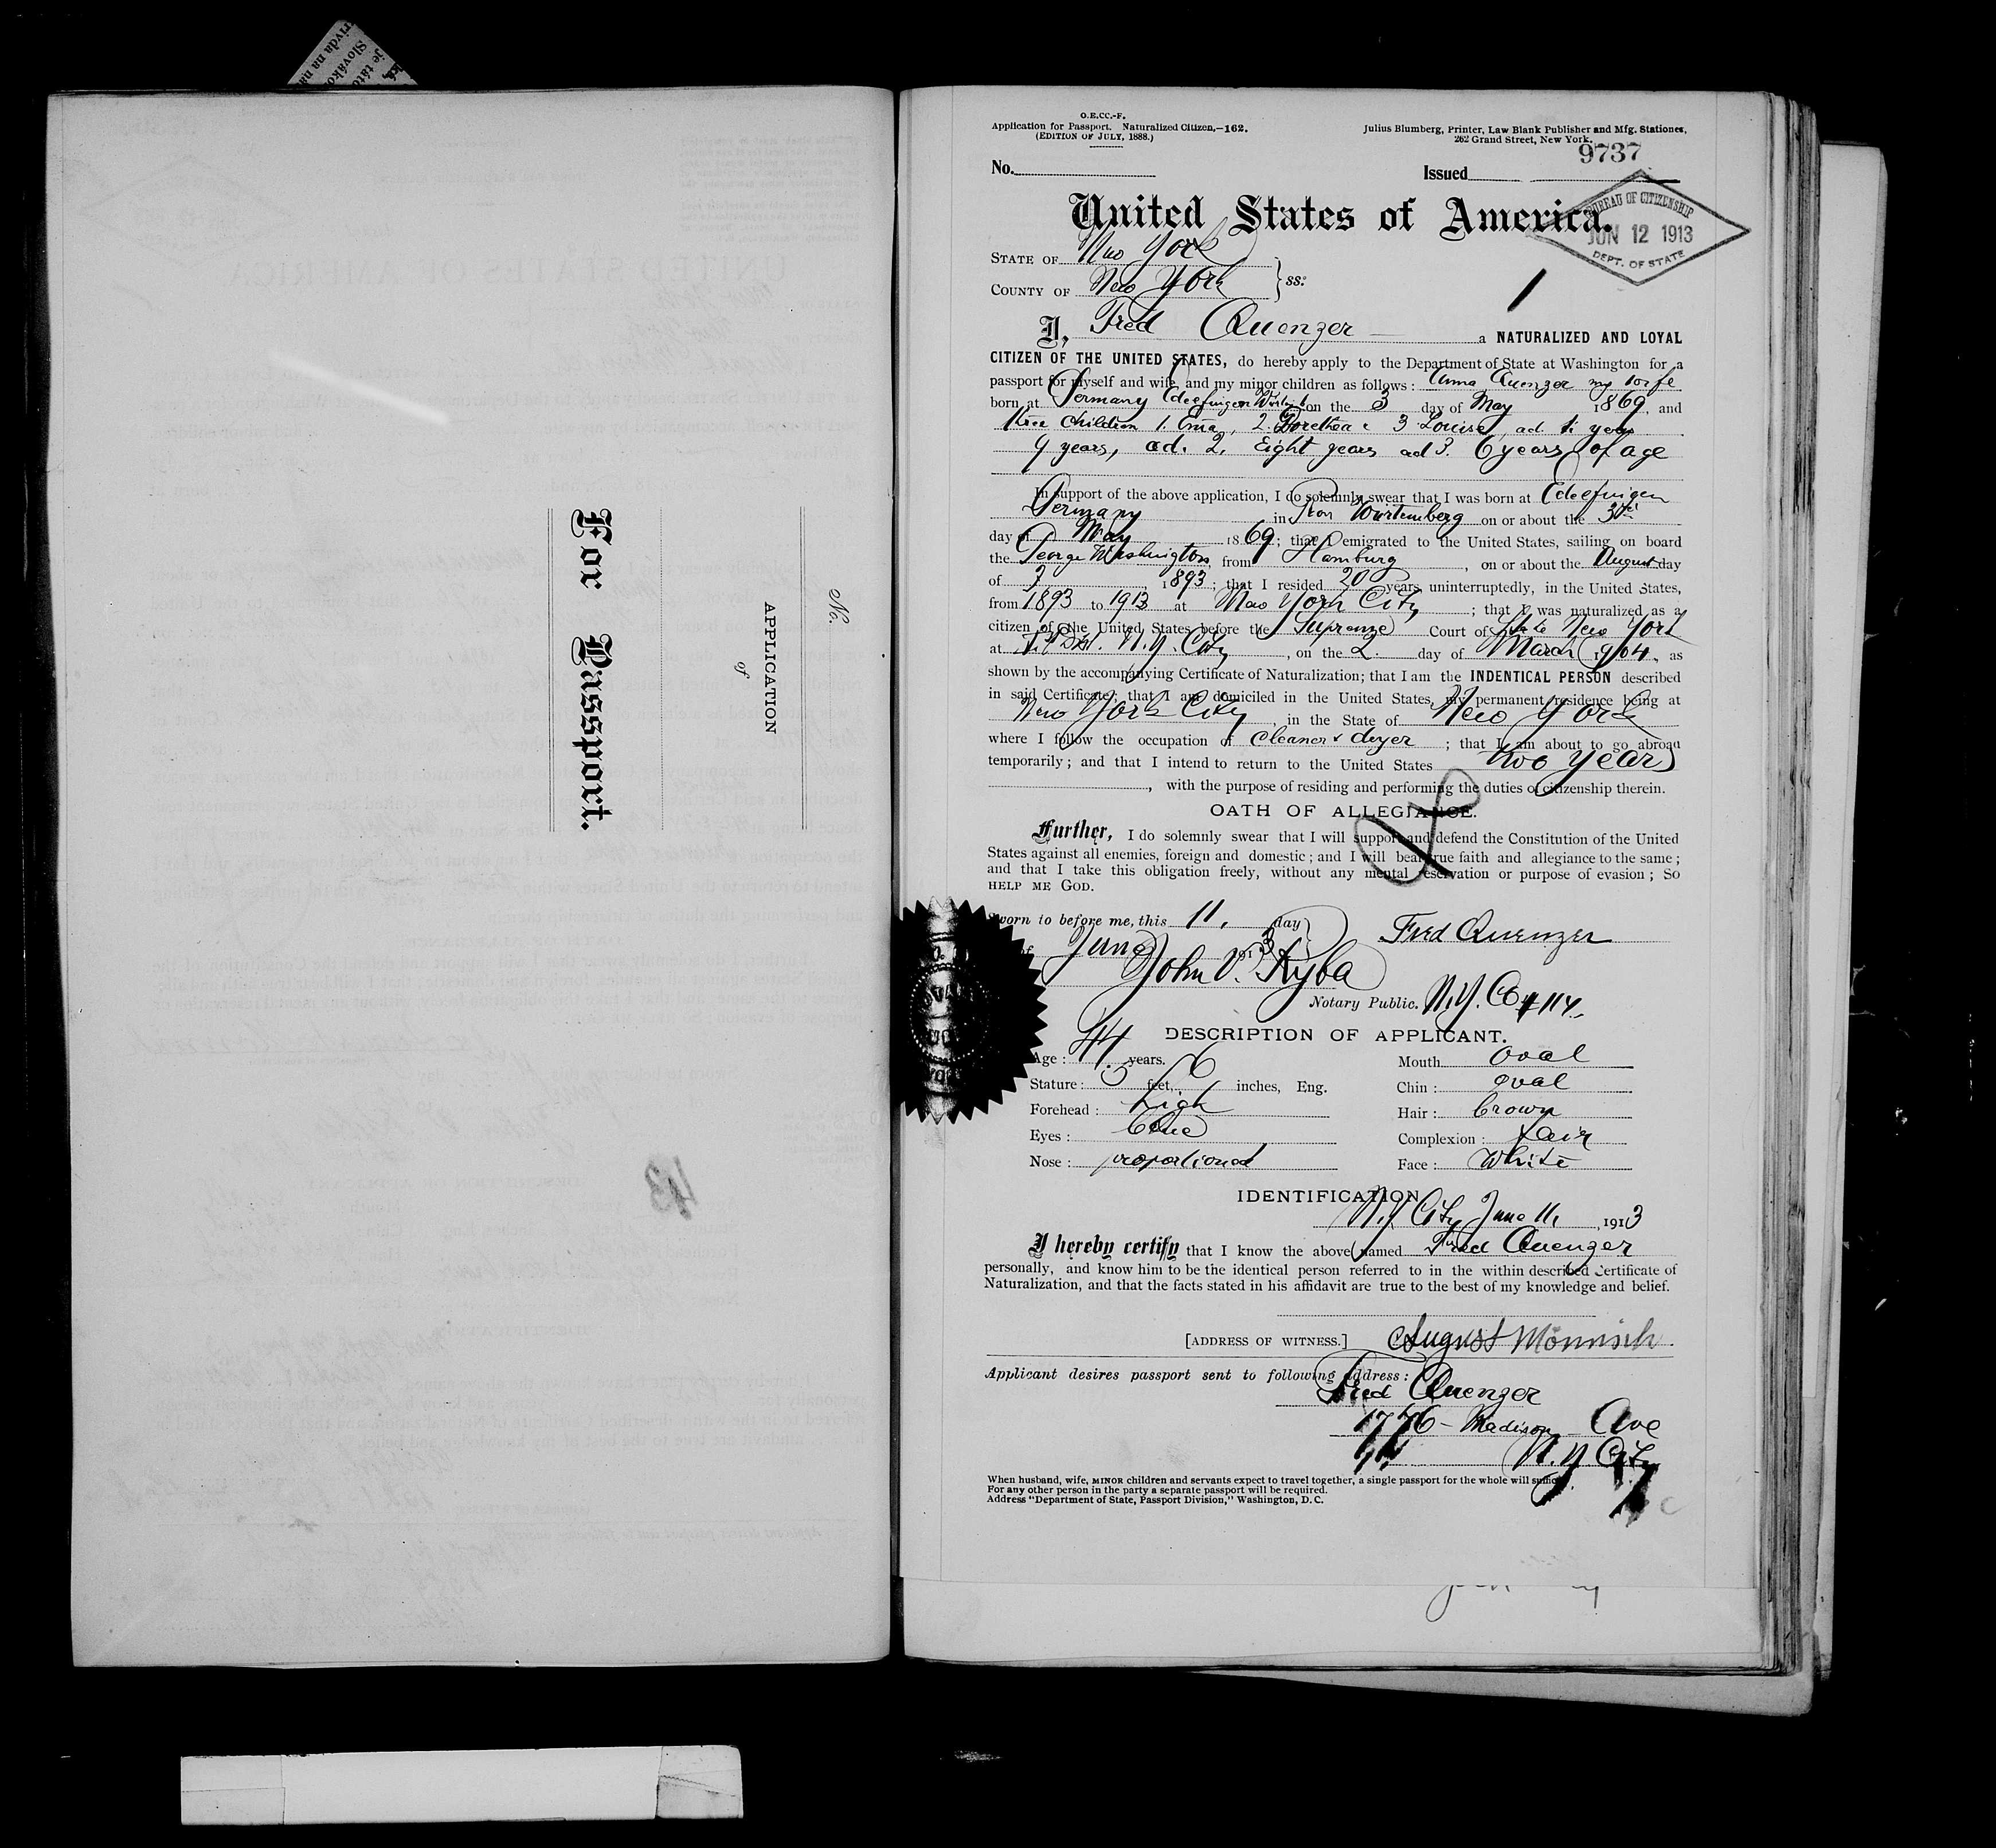 O.E.CC.-F.
Application for Passport. Naturalized Citizen.—162.
(EDITION OF JULY, 1888.)
Julius Blumberg, Printer, Law Blank Publisher and Mfg. Stationer,
262 Grand Street, New York.
9737
No.
Issued
United States of America.
BUREAU OF CITIZENSHIP
JUN 12 1913
DEPT. OF STATE
STATE OF New York
COUNTY OF New York ss:
I, Fred Quenzer a NATURALIZED AND LOYAL
CITIZEN OF THE UNITED STATES, do hereby apply to the Department of State at Washington for a
passport for myself and wife, and my minor children as follows: Anna Quenzer my wife
born at Germany on the 3 day of May 1869, and
three children 1. Erna, 2. Dorethea & 3 Louise, ad. 1. years
9 years, ad. 2, Eight years ad 3. 6 years of age
In support of the above application, I do solemnly swear that I was born at
Germany in Wirtemberg on or about the 3rd
day of May 1869; that I emigrated to the United States, sailing on board
the George Washington, from Hamburg, on or about the August day
of 1893; that I resided 20 years, uninterruptedly, in the United States,
from 1893 to 1913 at New York City; that I was naturalized as a
citizen of the United States before the Supreme Court of State New York
at N.Y. City, on the 2. day of March 1904, as
shown by the accompanying Certificate of Naturalization; that I am the INDENTICAL PERSON described
in said Certificate; that I am domiciled in the United States, my permanent residence being at
New York City, in the State of New York
where I follow the occupation of Cleaner & dyer; that I am about to go abroad
temporarily; and that I intend to return to the United States two years
, with the purpose of residing and performing the duties of citizenship therein.
OATH OF ALLEGIANCE.
Further, I do solemnly swear that I will support and defend the Constitution of the United
States against all enemies, foreign and domestic; and I will bear true faith and allegiance to the same;
and that I take this obligation freely, without any mental reservation or purpose of evasion; So
HELP ME GOD.
Sworn to before me, this 11. day
of June 1913
Fred Quenzer
John V. Ryba
Notary Public. N.Y. Co # 114.
DESCRIPTION OF APPLICANT.
Age: 44 years. Mouth Oval
Stature: 5 feet, 6 inches, Eng. Chin: oval
Forehead: high Hair: brown
Eyes: blue Complexion: fair
Nose: proportioned Face: White
IDENTIFICATION
N.Y. City June 11, 1913
I hereby certify that I know the above named Fred Quenzer
personally, and know him to be the identical person referred to in the within described Certificate of
Naturalization, and that the facts stated in his affidavit are true to the best of my knowledge and belief.
[ADDRESS OF WITNESS.] August Mönnich
Applicant desires passport sent to following address:
Fred Quenzer
1776 - Madison Ave
N.Y City
When husband, wife, MINOR children and servants expect to travel together, a single passport for the whole will suffice.
For any other person in the party a separate passport will be required.
Address "Department of State, Passport Division," Washington, D. C.
No.
APPLICATION
of
For Passport.
43